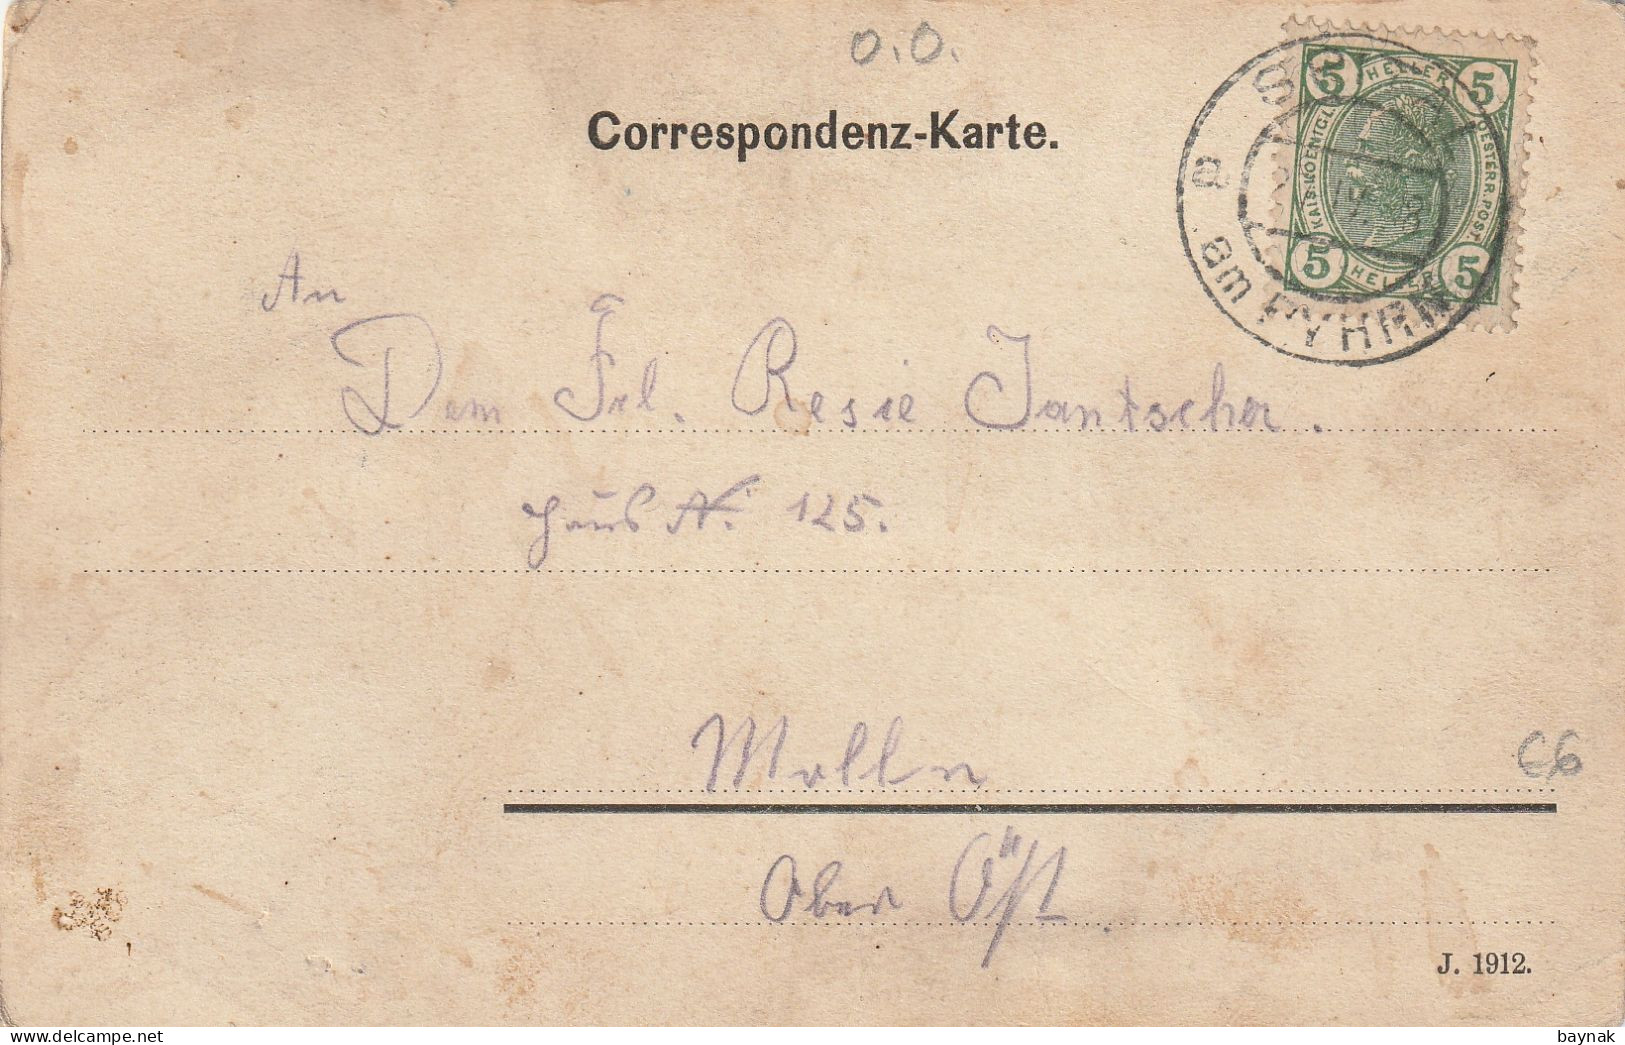 O.Ö.
Correspondenz-Karte.
5 HELLER 5
KAIS. KOENIGL. OESTERR. POST.
5 HELLER 5
am PYHRN
An
Dem Frl. Resie Jantscher.
Haus Nr. 125.
Molln
Ober Öst.
€6
J. 1912.
baynak